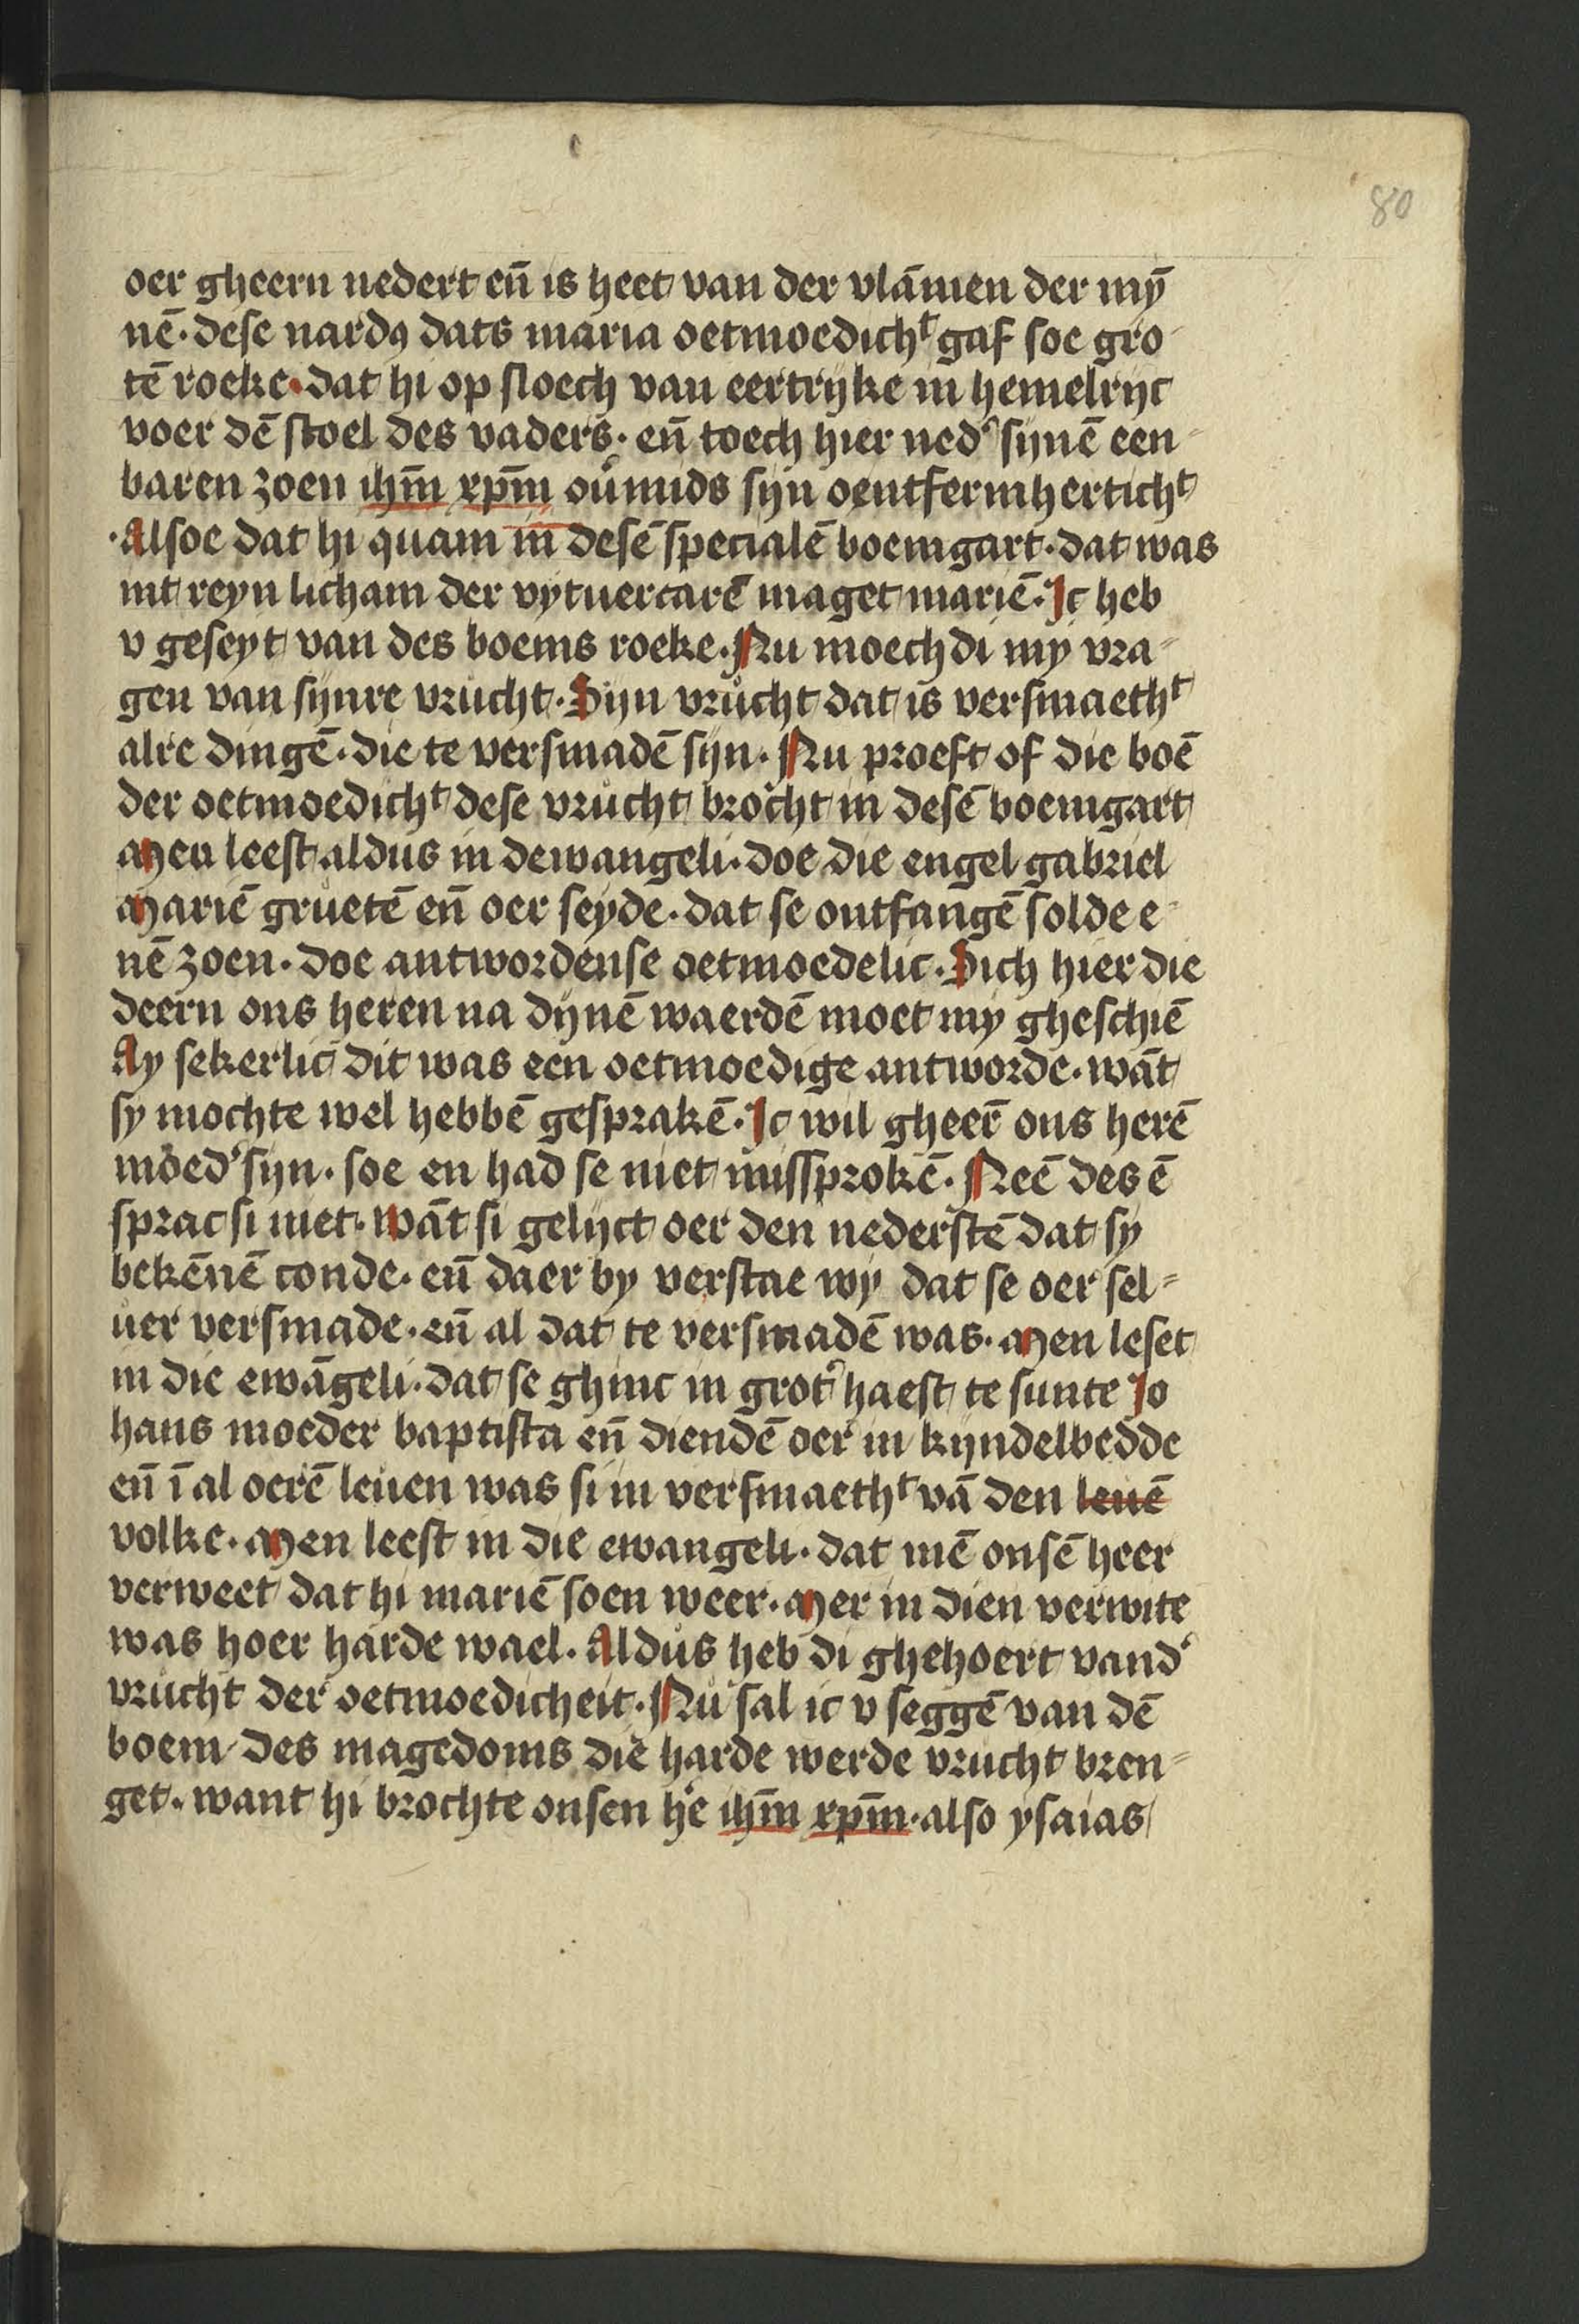 80
oer gheern nedert en̄ is heet van der vlāmen der mȳ
nē · dese nardꝯ dats maria oetmoedichᵗ gaf soe gro-
tē roeke · dat hi op sloech van eertrijke in hemelrijc
voer dē stoel des vaders · en̄ toech hier ned͛ sijnē een-
baren zoen ihm̄ xpm̄ ou͛mids sijn oentfermhertichᵗ
· Alsoe dat hi quam in desē specialē boemgart · dat was
int reyn licham der vytuercarē maget mariē · Jc heb
v geseyt van des boems roeke · Nu moech di my vra-
gen van synre vrucht · Sijn vrucht dat is versmaethᵗ
alre dingē · die te versmadē sijn · Nu proeft of die boē
der oetmoedichᵗ dese vrucht brocht in desē boemgart
Men leest aldus in dewangeli · doe die engel gabriel
Mariē gruetē en̄ oer seyde · dat se ontfangē solde e-
nē zoen · doe antwordense oetmoedelic · Sich hier die
deern ons heren na dijnē waerdē moet my gheschiē
Ay sekerlic dit was een oetmoedige antworde · wāt
sy mochte wel hebbē gesprakē · Jc wil gheer̄ ons herē
moed͛ sijn · soe en had se niet missprokē · Neē des ē
sprac si niet · Wāt si gelijct oer den nederstē dat sy
bekēnē conde · en̄ daer by verstae wy dat se oer sel-
uer versmade · en̄ al dat te versmadē was · Men leset
in die ewāgeli · dat se ghinc in grot͛ haest te sunte Jo
hans moeder baptista en̄ diendē oer in kyndelbedde
en̄ ī al oerē leuen was si in versmaethᵗ vā den leuē
volke · Men leest in die ewangeli · dat mē onsē heer
verweet dat hi mariē soen weer · Mer in dien verwite
was hoer harde wael · Aldus heb di ghehoert vand͛
vrucht der oetmoedicheit · Nu sal ic v seggē van dē
boem des magedoms die harde werde vrucht bren-
get · want hi brochte onsen he͛ ihm̄ xpm̄ · also ysaias